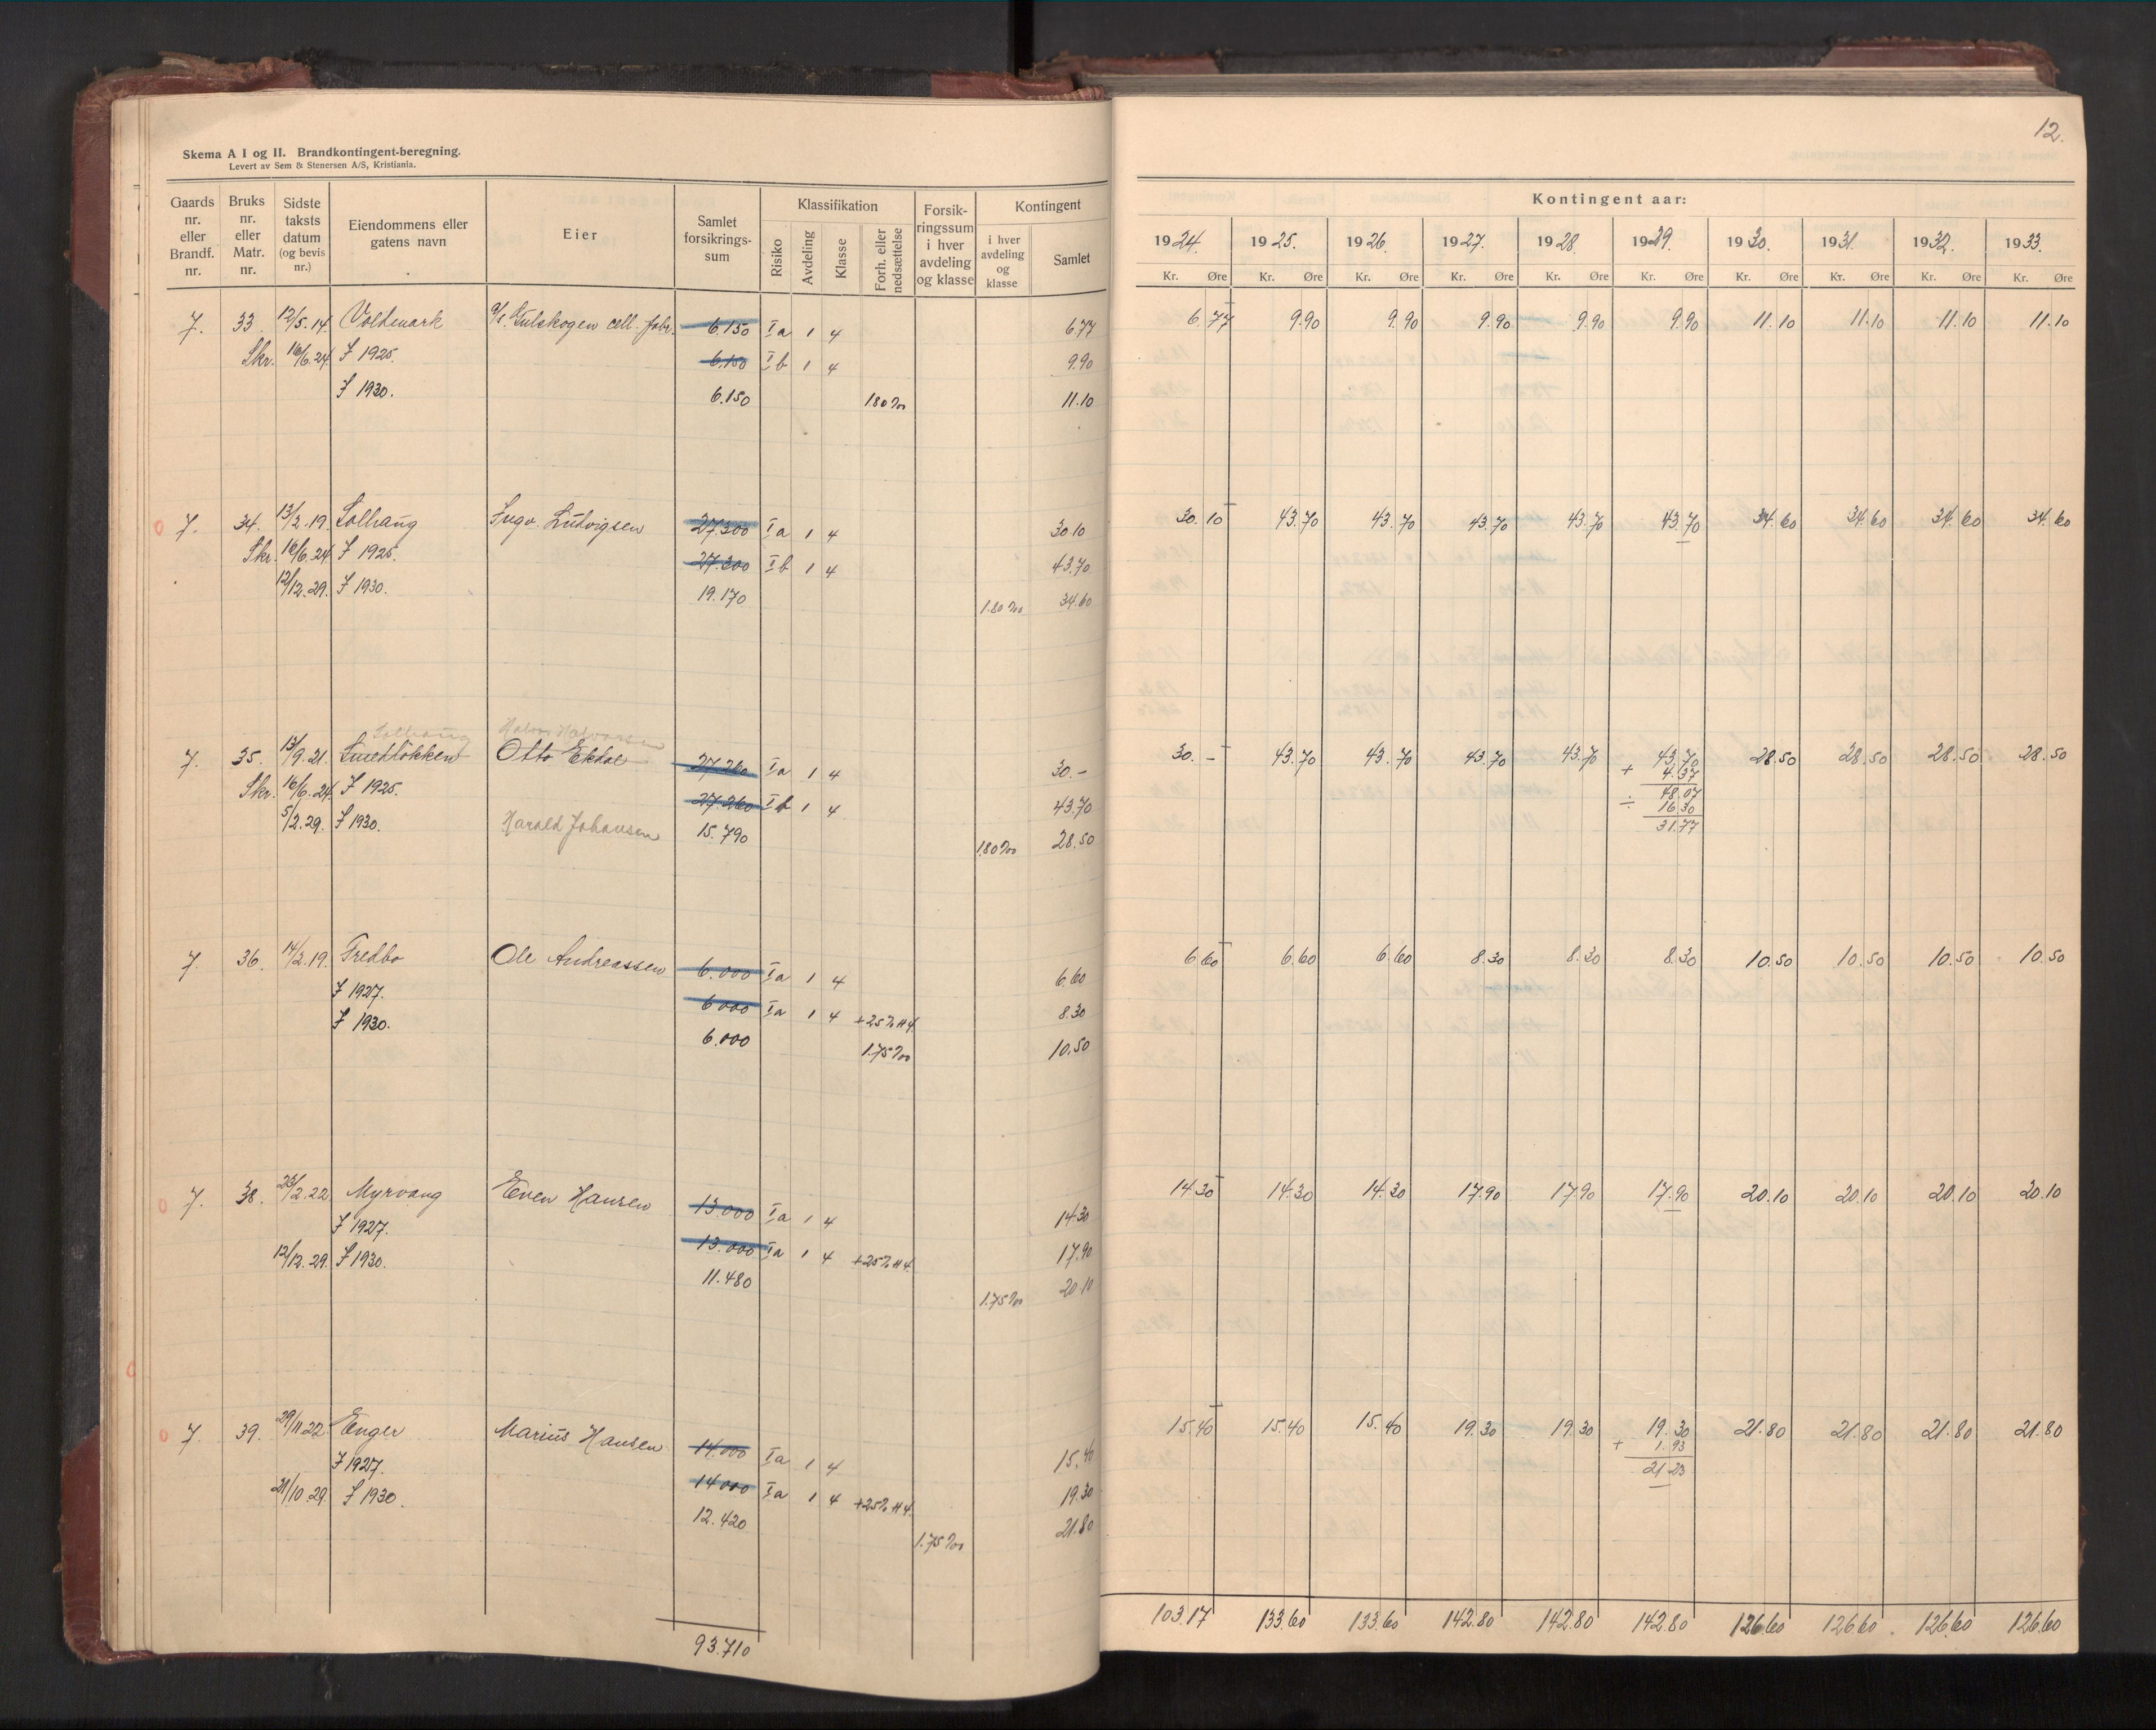 12.
Skema A I og II. Brandkontingent-beregning.
Levert av Sem & Stenersen A/S, Kristiania.
Gaards nr. eller Brandf. nr. Bruks nr. eller Matr. nr. Sidste taksts datum (og bevis nr.) Eiendommens eller gatens navn Eier Samlet forsikrings- sum Klassifikation Risiko Avdeling Klasse Forh. eller nedsættelse Forsik- ringssum i hver avdeling og klasse Kontingent i hver avdeling og klasse Samlet
Kontingent aar:
1924. 1925. 1926. 1927. 1928. 1929. 1930. 1931. 1932. 1933.
Kr. Øre Kr. Øre Kr. Øre Kr. Øre Kr. Øre Kr. Øre Kr. Øre Kr. Øre Kr. Øre Kr. Øre
7. 33 12/5.14. Voldmark A/S. Gulskogen cell. fabr. 6.150 Ia 1 4 6.77 6.77 9.90 9.90 9.90 9.90 9.90 11.10 11.10 11.10 11.10
Skr. 16/6.24. F 1925. 6.150 Ib 1 4 9.90
F 1930. 6.150 1.80‰ 11.10
7. 34. 13/2.19. Solhaug Ingv. Ludvigsen 27.300 Ia 1 4 30.10 30.10 43.70 43.70 43.70 43.70 43.70 34.60 34.60 34.60 34.60
Skr. 16/6.24. F 1925. 27.300 Ib 1 4 43.70
12/12.29. F 1930. 19.170 1.80‰ 34.60
Solhaug Halvor Halvorsen
7. 35. 13/9.21. Smedløkken Otto Ekdal 27.260 Ia 1 4 30.- 30.- 43.70 43.70 43.70 43.70 43.70 28.50 28.50 28.50 28.50
+ 4.37
Skr. 16/6.24. F 1925. 27.260 Ib 1 4 43.70 48.07
÷ 16.30
5/2.29. F 1930. Harald Johansen 15.790 1.80‰ 28.50 31.77
7. 36. 14/2.19. Fredbo Ole Andreassen 6.000 Ia 1 4 6.60 6.60 6.60 6.60 8.30 8.30 8.30 10.50 10.50 10.50 10.50
F 1927. 6000 Ia 1 4 +25% H4. 8.30
F 1930. 6.000 1.75‰ 10.50
7. 38. 23/2.22 Myrvang Even Hansen 13.000 Ia 1 4 14.30 14.30 14.30 14.30 17.90 17.90 17.90 20.10 20.10 20.10 20.10
F 1927. 13.000 Ia 1 4 +25% H4. 17.90
12/12.29. F 1930. 11.480 1.75‰ 20.10
7. 39. 29/11.22. Enger Marius Hansen 14.000 Ia 1 4 15.40 15.40 15.40 15.40 19.30 19.30 19.30 21.80 21.80 21.80 21.80
+ 1.93
F 1927. 14000 Ia 1 4 +25% H4. 19.30 21.23
21/10.29. F 1930. 12.420 1.75‰ 21.80
93.710 103.17 133.60 133.60 142.80 142.80 142.80 126.60 126.60 126.60 126.60